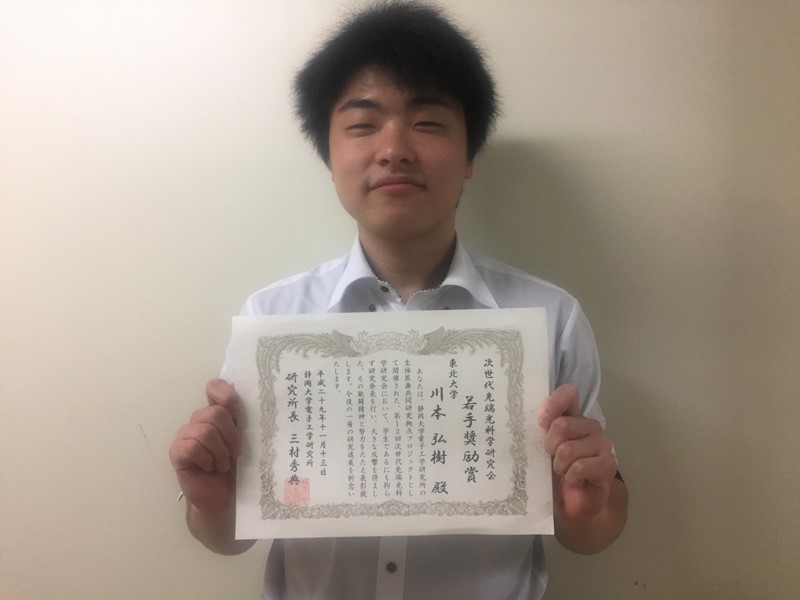 次世代先端光科学研究会
若手奨励賞
東北大学
川本 弘樹 殿
あなたは、静岡大学電子工学研究所の
生体医歯共同研究拠点プロジェクトとし
て開催された、第12回次世代先端光科
学研究会において、学生であるにも拘ら
ず研究発表を行い、大きな反響を得まし
た。その敢闘精神と努力をたたえ表彰致
します。今後の一層の研究進展を祈念い
たします。
平成二十九年十一月十三日
静岡大学電子工学研究所
研究所長 三村秀典